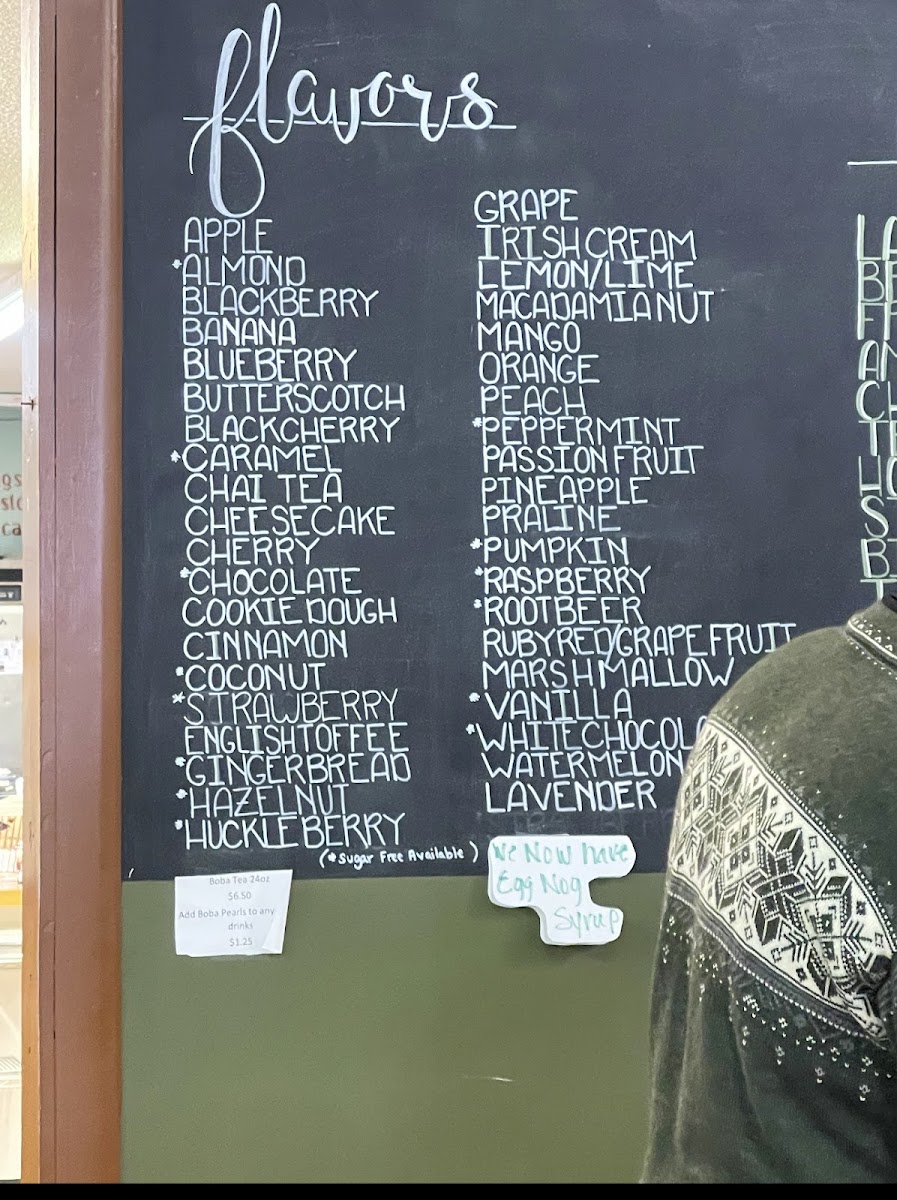 flavors
APPLE
*ALMOND
BLACKBERRY
BANANA
BLUEBERRY
BUTTERSCOTCH
BLACKCHERRY
*CARAMEL
CHAI TEA
CHEESECAKE
CHERRY
*CHOCOLATE
COOKIE DOUGH
CINNAMON
*COCONUT
*STRAWBERRY
ENGLISH TOFFEE
*GINGERBREAD
*HAZELNUT
*HUCKLEBERRY
(*Sugar Free Available)
GRAPE
IRISH CREAM
LEMON/LIME
MACADAMIA NUT
MANGO
ORANGE
PEACH
*PEPPERMINT
PASSION FRUIT
PINEAPPLE
PRALINE
*PUMPKIN
*RASPBERRY
*ROOTBEER
RUBY RED/GRAPEFRUIT
MARSHMALLOW
*VANILLA
*WHITE CHOCOL
WATERMELON
LAVENDER
Boba Tea 24oz
$6.50
Add Boba Pearls to any
drinks
$1.25
We Now have
Egg Nog
Syrup